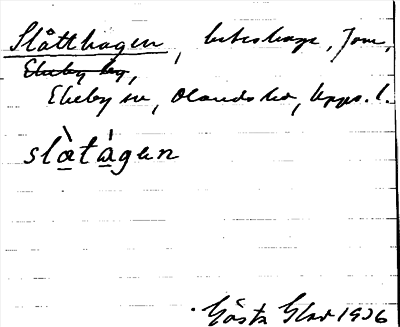 Slåtthagen, beteshage, Tom,
Ekeby by,
Ekeby sn, Olands hd, Upps. l.
slàtágen
Gösta Glad 1936